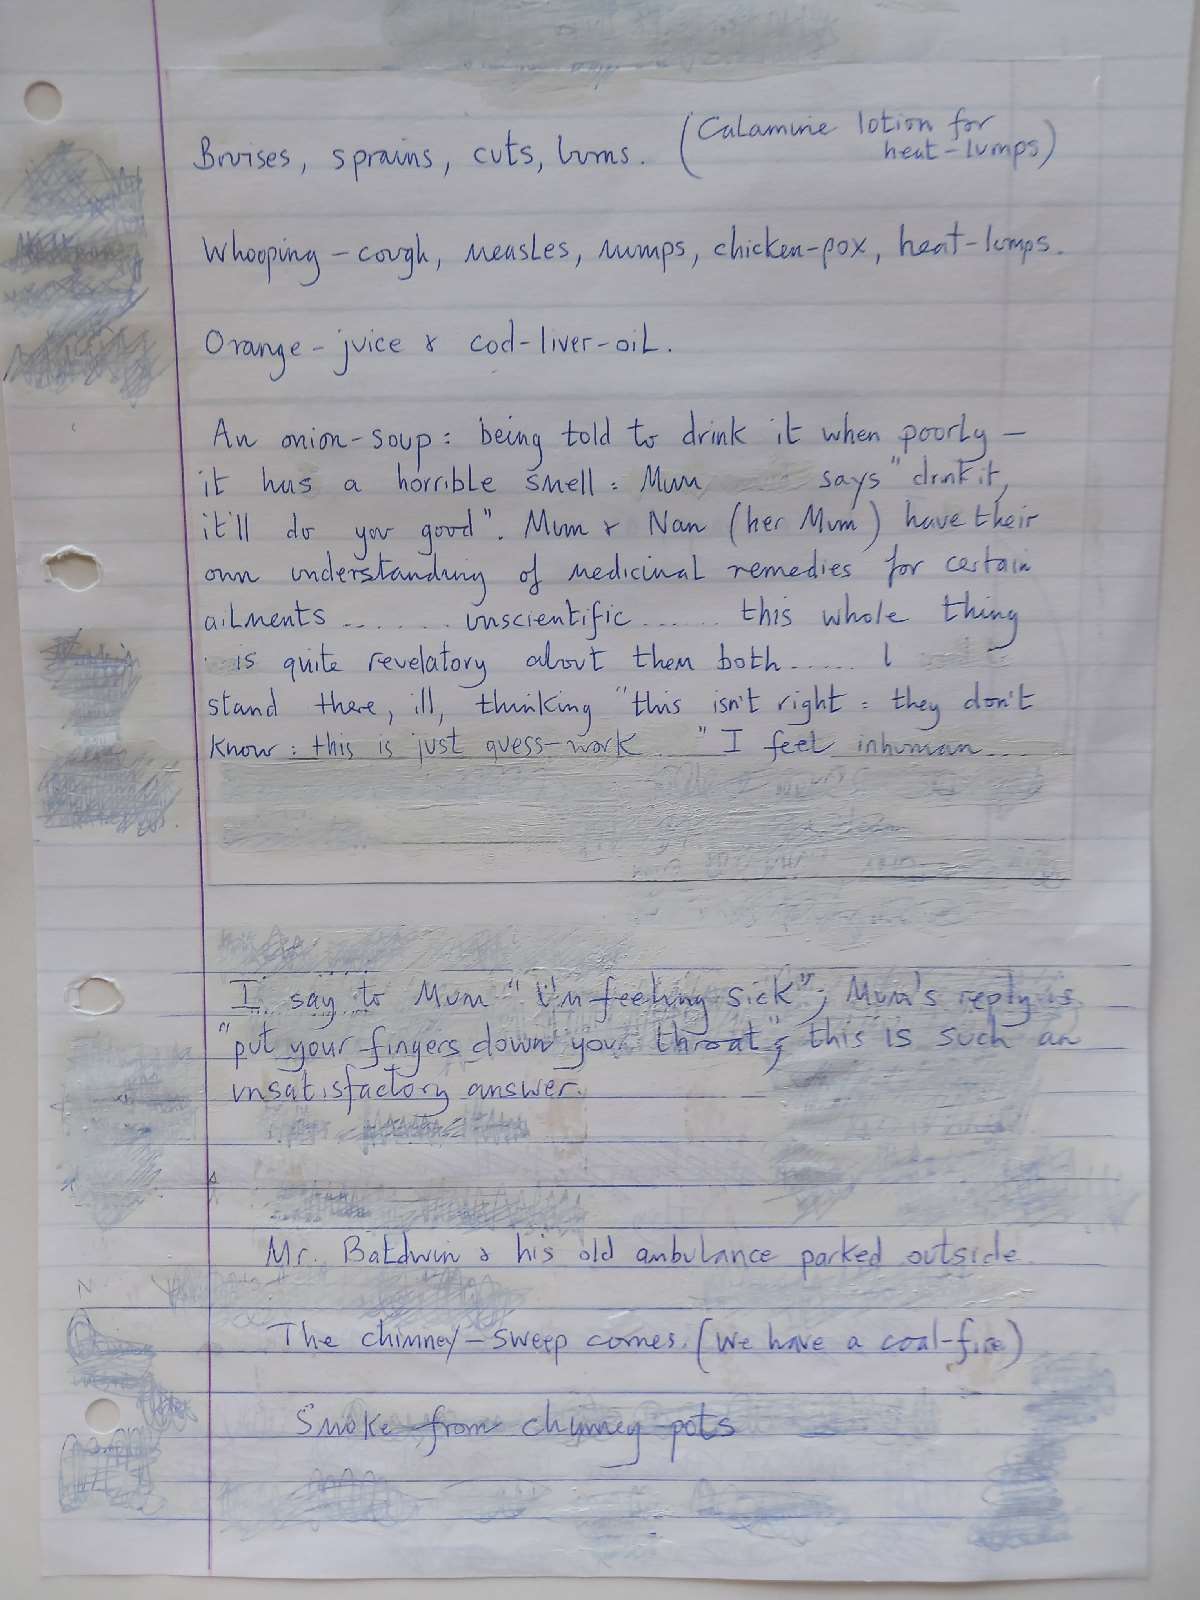 Bruises, sprains, cuts, burns. (Calamine lotion for
heat-lumps)
Whooping-cough, measles, mumps, chicken-pox, heat-lumps.
Orange-juice & cod-liver-oil.
An onion-soup: being told to drink it when poorly –
it has a horrible smell: Mum says "drink it,
it'll do you good". Mum & Nan (her Mum) have their
own understanding of medicinal remedies for certain
ailments ....... unscientific ...... this whole thing
is quite revelatory about them both ...... I
stand there, ill, thinking "this isn't right: they don't
know: this is just guess-work ..." I feel inhuman ...
I say to Mum "I'm feeling sick"; Mum's reply is
"put your fingers down your throat"; this is such an
unsatisfactory answer.
Mr. Baldwin & his old ambulance parked outside.
The chimney-sweep comes. (We have a coal-fire)
Smoke from chymney pots